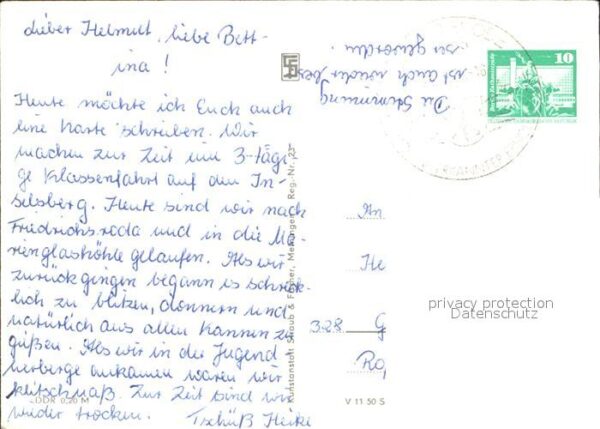 Lieber Helmut, liebe Bett-
ina!
Heute möchte ich Euch auch
eine Karte schreiben. Wir
machen zur Zeit eine 3-tägi-
ge Klassenfahrt auf den In-
selsberg. Heute sind wir nach
Friedrichsroda und in die Ma-
rienglashöhle gelaufen. Als wir
zurückgingen begann es schreck-
lich zu blitzen, donnern und
natürlich aus allen Kannen zu
gießen. Als wir in der Jugend
herberge ankamen waren wir
klitschnaß. Zur Zeit sind wir
wieder trocken. Tschüß Heike
Die Stimmung
ist auch wieder bes
ser geworden.
10
An
He
328 G
Ro,
privacy protection
Datenschutz
Kunstanstalt Straub & Fischer, Meiningen Reg.-Nr. 23
DDR 0,20 M
V 11 50 S